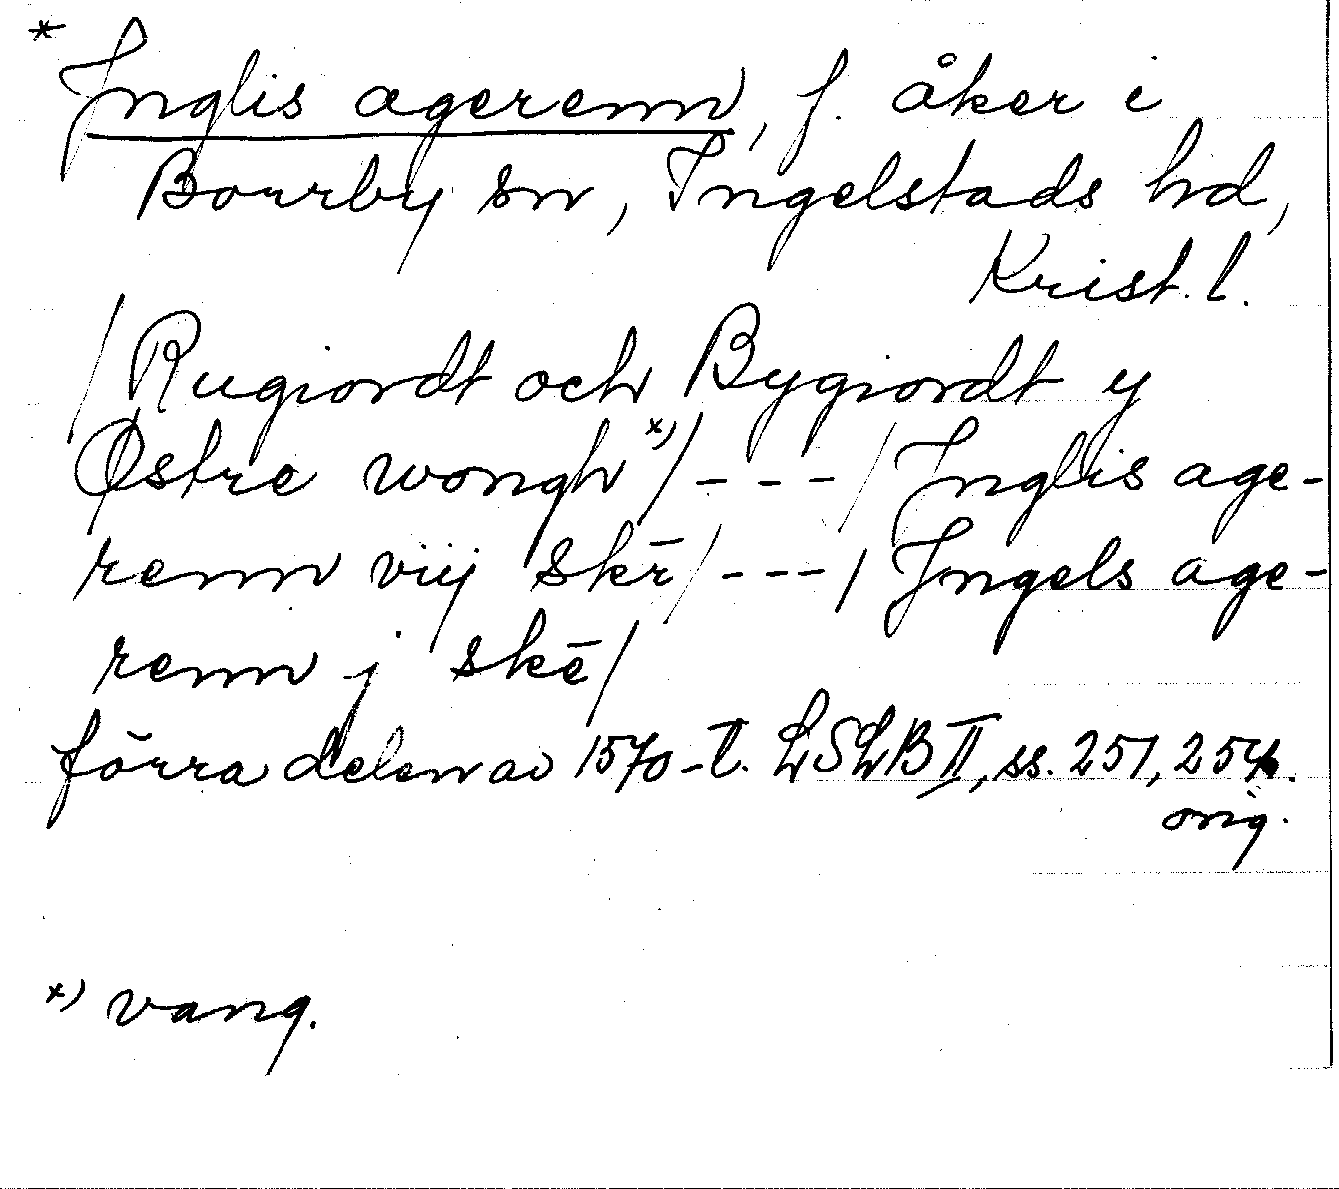 * Jnglis agerenn, f. åker i
Borrby sn, Ingelstads hd,
Krist. l.
/Rugiordt och Bygiordt y
Østre wongh x)/ - - - / Jnglis age-
renn viij skē/ - - - / Jngels age-
renn j skē/
förra delen av 1570-t. LSLB II, ss. 251, 254.
orig.
x) vang.